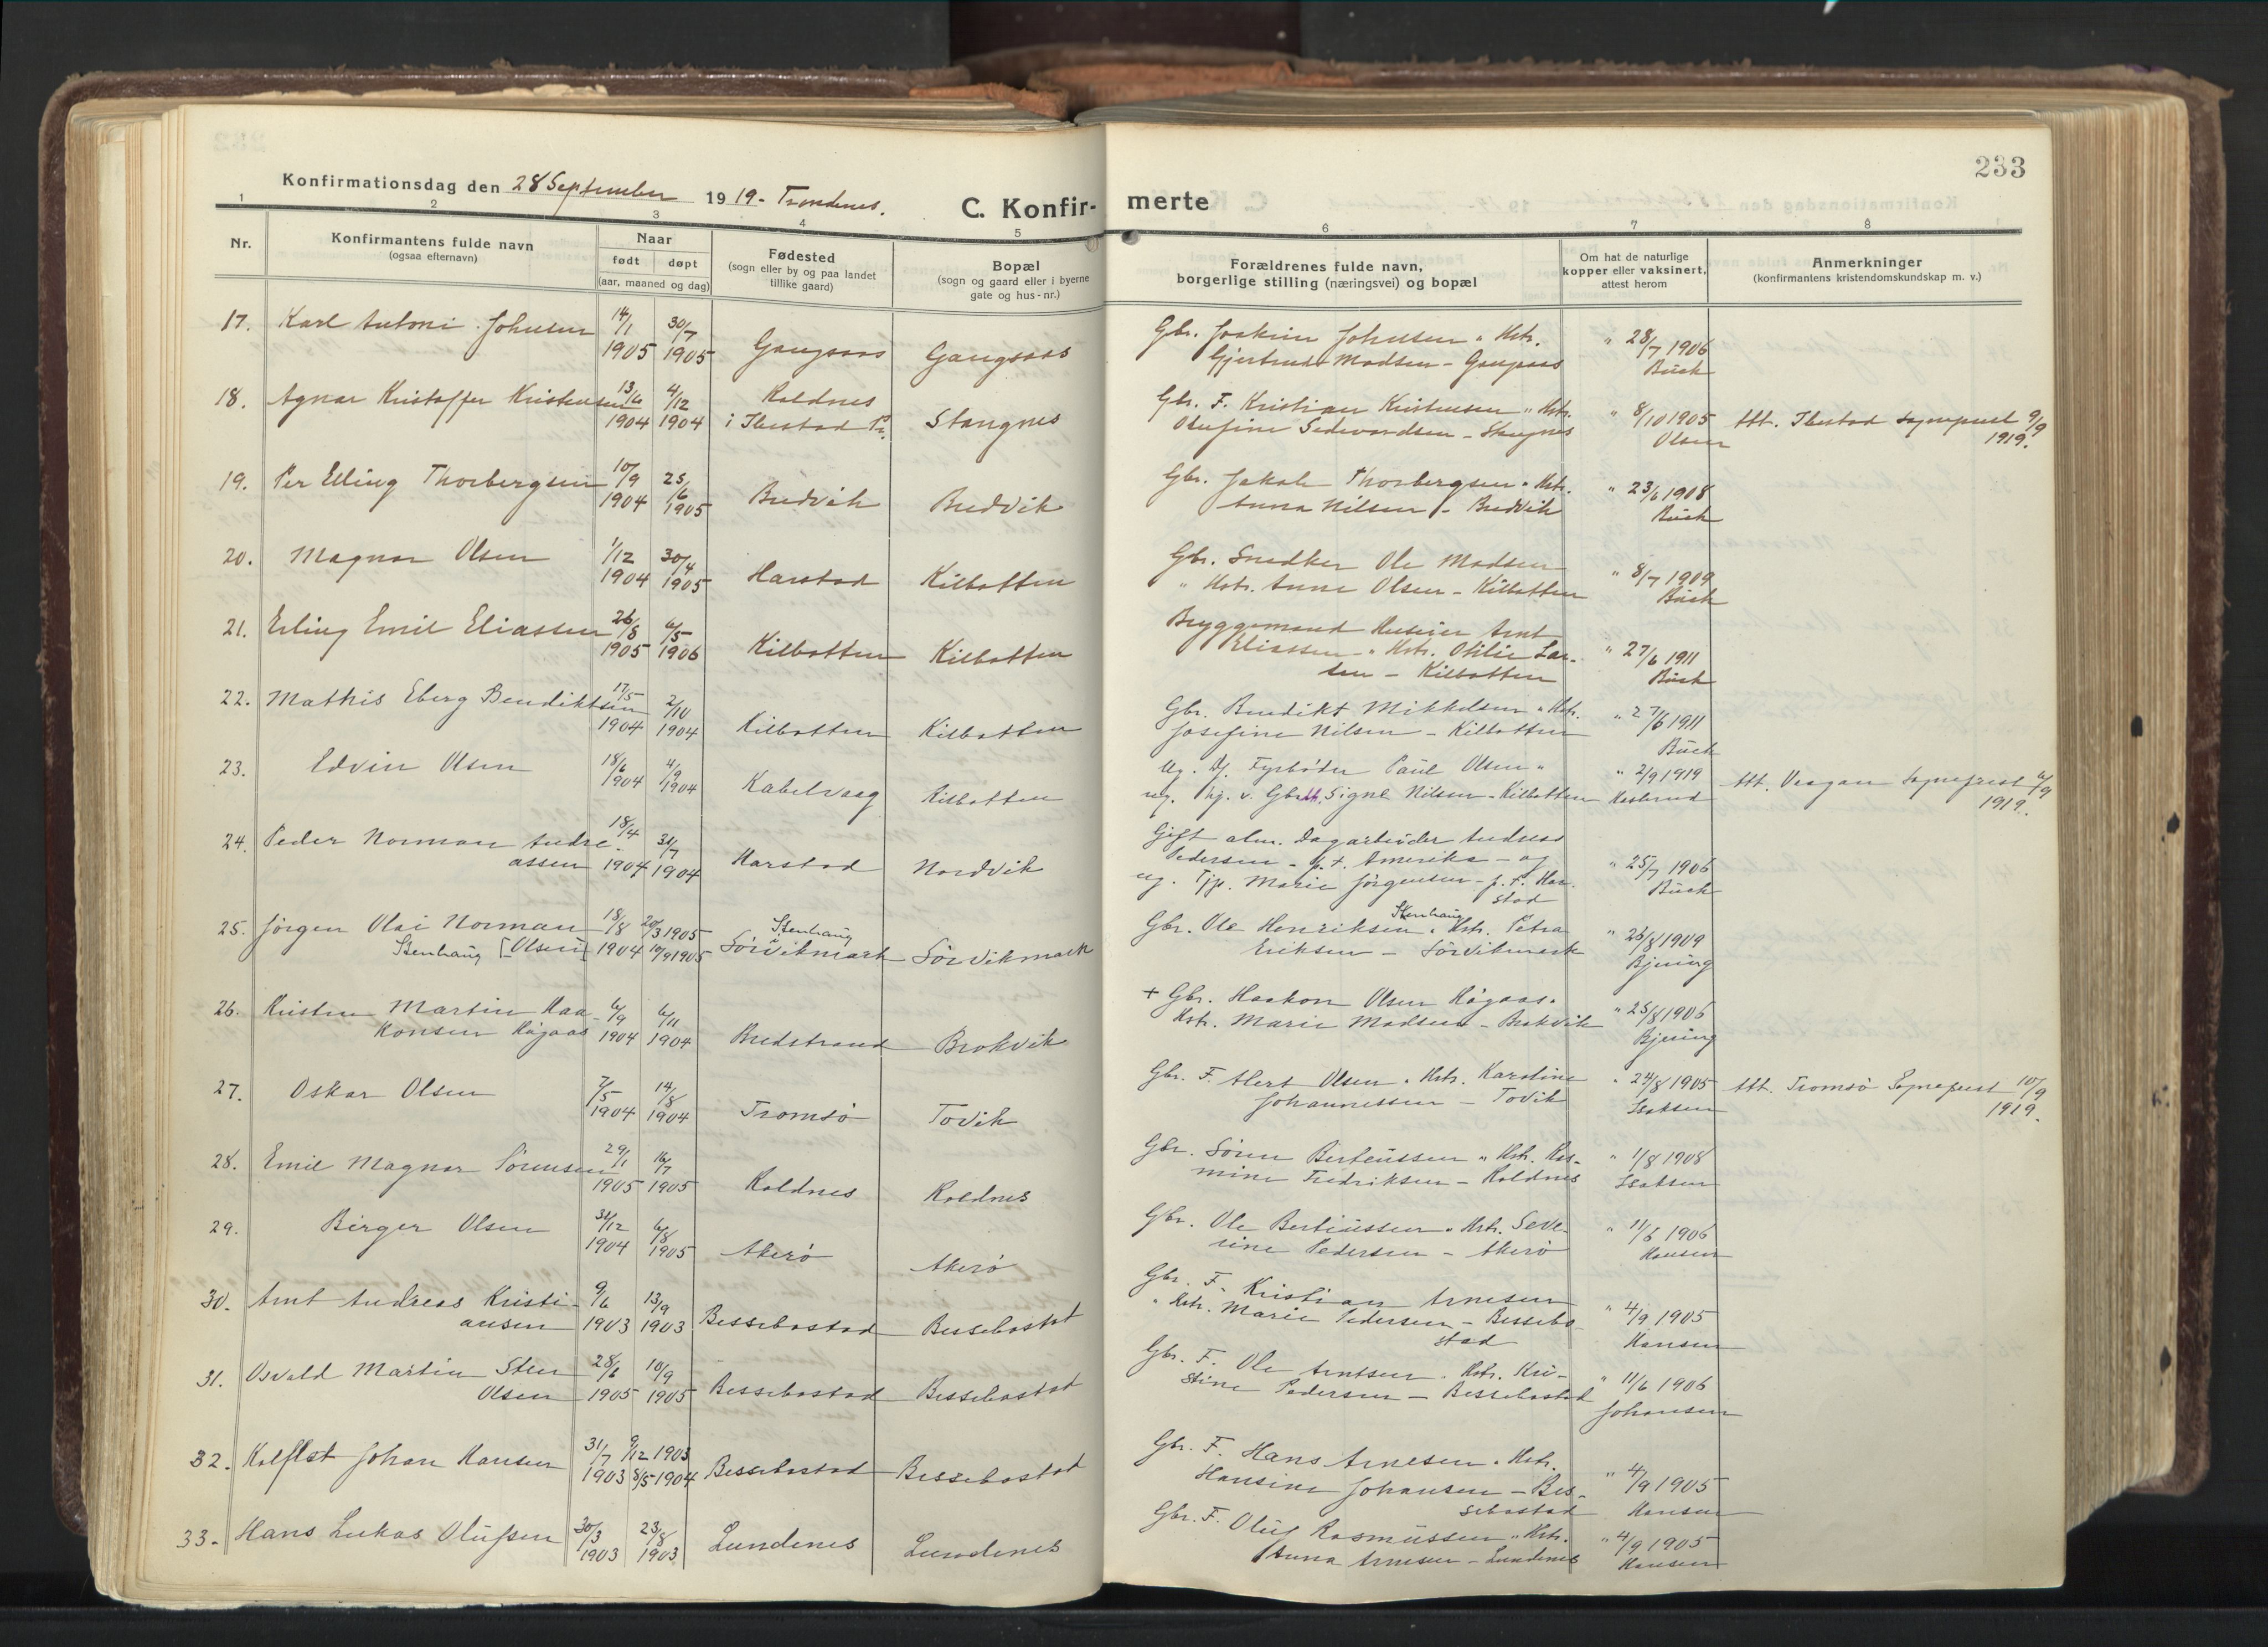 233
Konfirmationsdag den 28 September 1919 - Trondenes.
C. Konfirmerte
1 2 3 4 5 6 7 8
Nr.
Konfirmantens fulde navn
(ogsaa efternavn)
Naar
født døpt
(aar, maaned og dag)
Fødested
(sogn eller by og paa landet
tillike gaard)
Bopæl
(sogn og gaard eller i byerne
gate og hus-nr.)
Forældrenes fulde navn,
borgerlige stilling (næringsvei) og bopæl
Om hat de naturlige
kopper eller vaksinert,
attest herom
Anmerkninger
(konfirmantens kristendomskundskap m. v.)
17. Karl Antoni Johnsen 14/1 1905 30/7 1905 Gangsaas Gangsaas
Gbr. Joakim Johnsen " Hstr.
Gjertrud Madsen - Gangsaas
" 28/7 1906
Buck
18. Agnar Kristoffer Kristensen 13/6 1904 4/12 1904 Roldnes
i Ibestad Pr. Stangnes
Gbr. F. Kristian Kristensen " Hstr.
Olufine Sedevardsen - Stangnes
" 8/10 1905
Olsen
Att. Ibestad Sogneprest 9/9
1919.
19. Per Elling Thorbergsen 10/9 1904 25/6 1905 Bredvik Bredvik
Gbr. Jakob Thorbergsen " Hstr.
Anna Nilsen - Bredvik
" 23/6 1908
Buck
20. Magnar Olsen 1/12 1904 30/4 1905 Harstad Kilbotten
Gbr. Snedker Ole Madsen
" Hstr. Anne Olsen - Kilbotten
" 8/7 1909
Buck
21. Erling Emil Eliassen 26/8 1905 6/5 1906 Kilbotten Kilbotten
Bryggemand Huseier Arnt
Eliassen - " Hstr. Otilie Lar-
sen - Kilbotten
" 27/6 1911
Buck
22. Mathis Eberg Bendiktsen 17/5 1904 2/10 1904 Kilbotten Kilbotten
Gbr. Benedikt Mikkelsen " Hstr.
Josefine Nilsen - Kilbotten
" 27/6 1911
Buck
23. Edvin Olsen 18/6 1904 4/9 1904 Kabelvaag Kilbotten
Ug. Fyrbøter Paul Olsen "
ug. Signe Nilsen - Kilbotten
" 2/9 1919
Att. Vaagan Sogneprest 6/9
1919.
24. Peder Norman Andre-
assen 18/4 1904 31/7 1904 Harstad Nordvik
Gift alm. Dagarbeider Andreas
Pedersen - p.t. Amerika - og
ug. Tjp. Marie Jörgensen - p.t. Har-
stad
" 25/7 1906
Buck
25. Jörgen Olai Norman
Stenhaug [Olsen] 18/8 1904 20/3 1905
10/9 1905 Stenhaug
Sörvikmark Sörvikmark
Stenhaug
Gbr. Ole Henriksen " Hstr. Petra
Eriksen - Sörvikmark
" 26/8 1909
Bjering
26. Kristen Martin Haa-
konsen Hågaas 6/9 1904 6/11 1904 Bredstrand Brokvik
+ Gbr. Haakon Olsen Hågaas.
Hstr. Marie Madsen - Brokvik
" 25/8 1906
Bjering
27. Oskar Olsen 7/5 1904 14/8 1904 Tromsö Tovik
Gbr. F. Albert Olsen " Hstr. Karoline
Johannessen - Tovik
" 24/8 1905
Isaksen
Att. Tromsö Sogneprest 10/9
1919.
28. Emil Magnar Sörensen 29/1 1905 16/7 1905 Roldnes Roldnes
Gbr. Sören Berteussen " Hstr. Ras-
mine Fredriksen - Roldnes
" 1/8 1908
Isaksen
29. Birger Olsen 31/12 1904 6/8 1905 Akerö Akerö
Gbr. Ole Berteussen " Hstr. Seve-
rine Pedersen - Akerö
" 11/6 1906
Hansen
30. Arnt Andreas Kristi-
ansen 9/6 1903 13/9 1903 Bessebostad Bessebostad
Gbr. F. Kristian Arnesen
" Hstr. Marie Pedersen - Bessebo-
stad
" 4/9 1905
Hansen
31. Osvald Martin Sten
Olsen 28/6 1905 10/9 1905 Bessebostad Bessebostad
Gbr. F. Ole Arntsen " Hstr. Kri-
stine Pedersen - Bessebostad
" 11/6 1906
Johansen
32. Johan Hansen 31/7 1903 9/12 1903
8/5 1904 Bessebostad Bessebostad
Gbr. F. Hans Arnesen " Hstr.
Hansine Johansen - Bes-
sebostad
" 4/9 1905
Hansen
33. Hans Lukas Olufsen 30/3 1903 23/8 1903 Lundenes Lundenes
Gbr. F. Oluf Rasmussen " Hstr.
Anna Arnesen - Lundenes
" 4/9 1905
Hansen